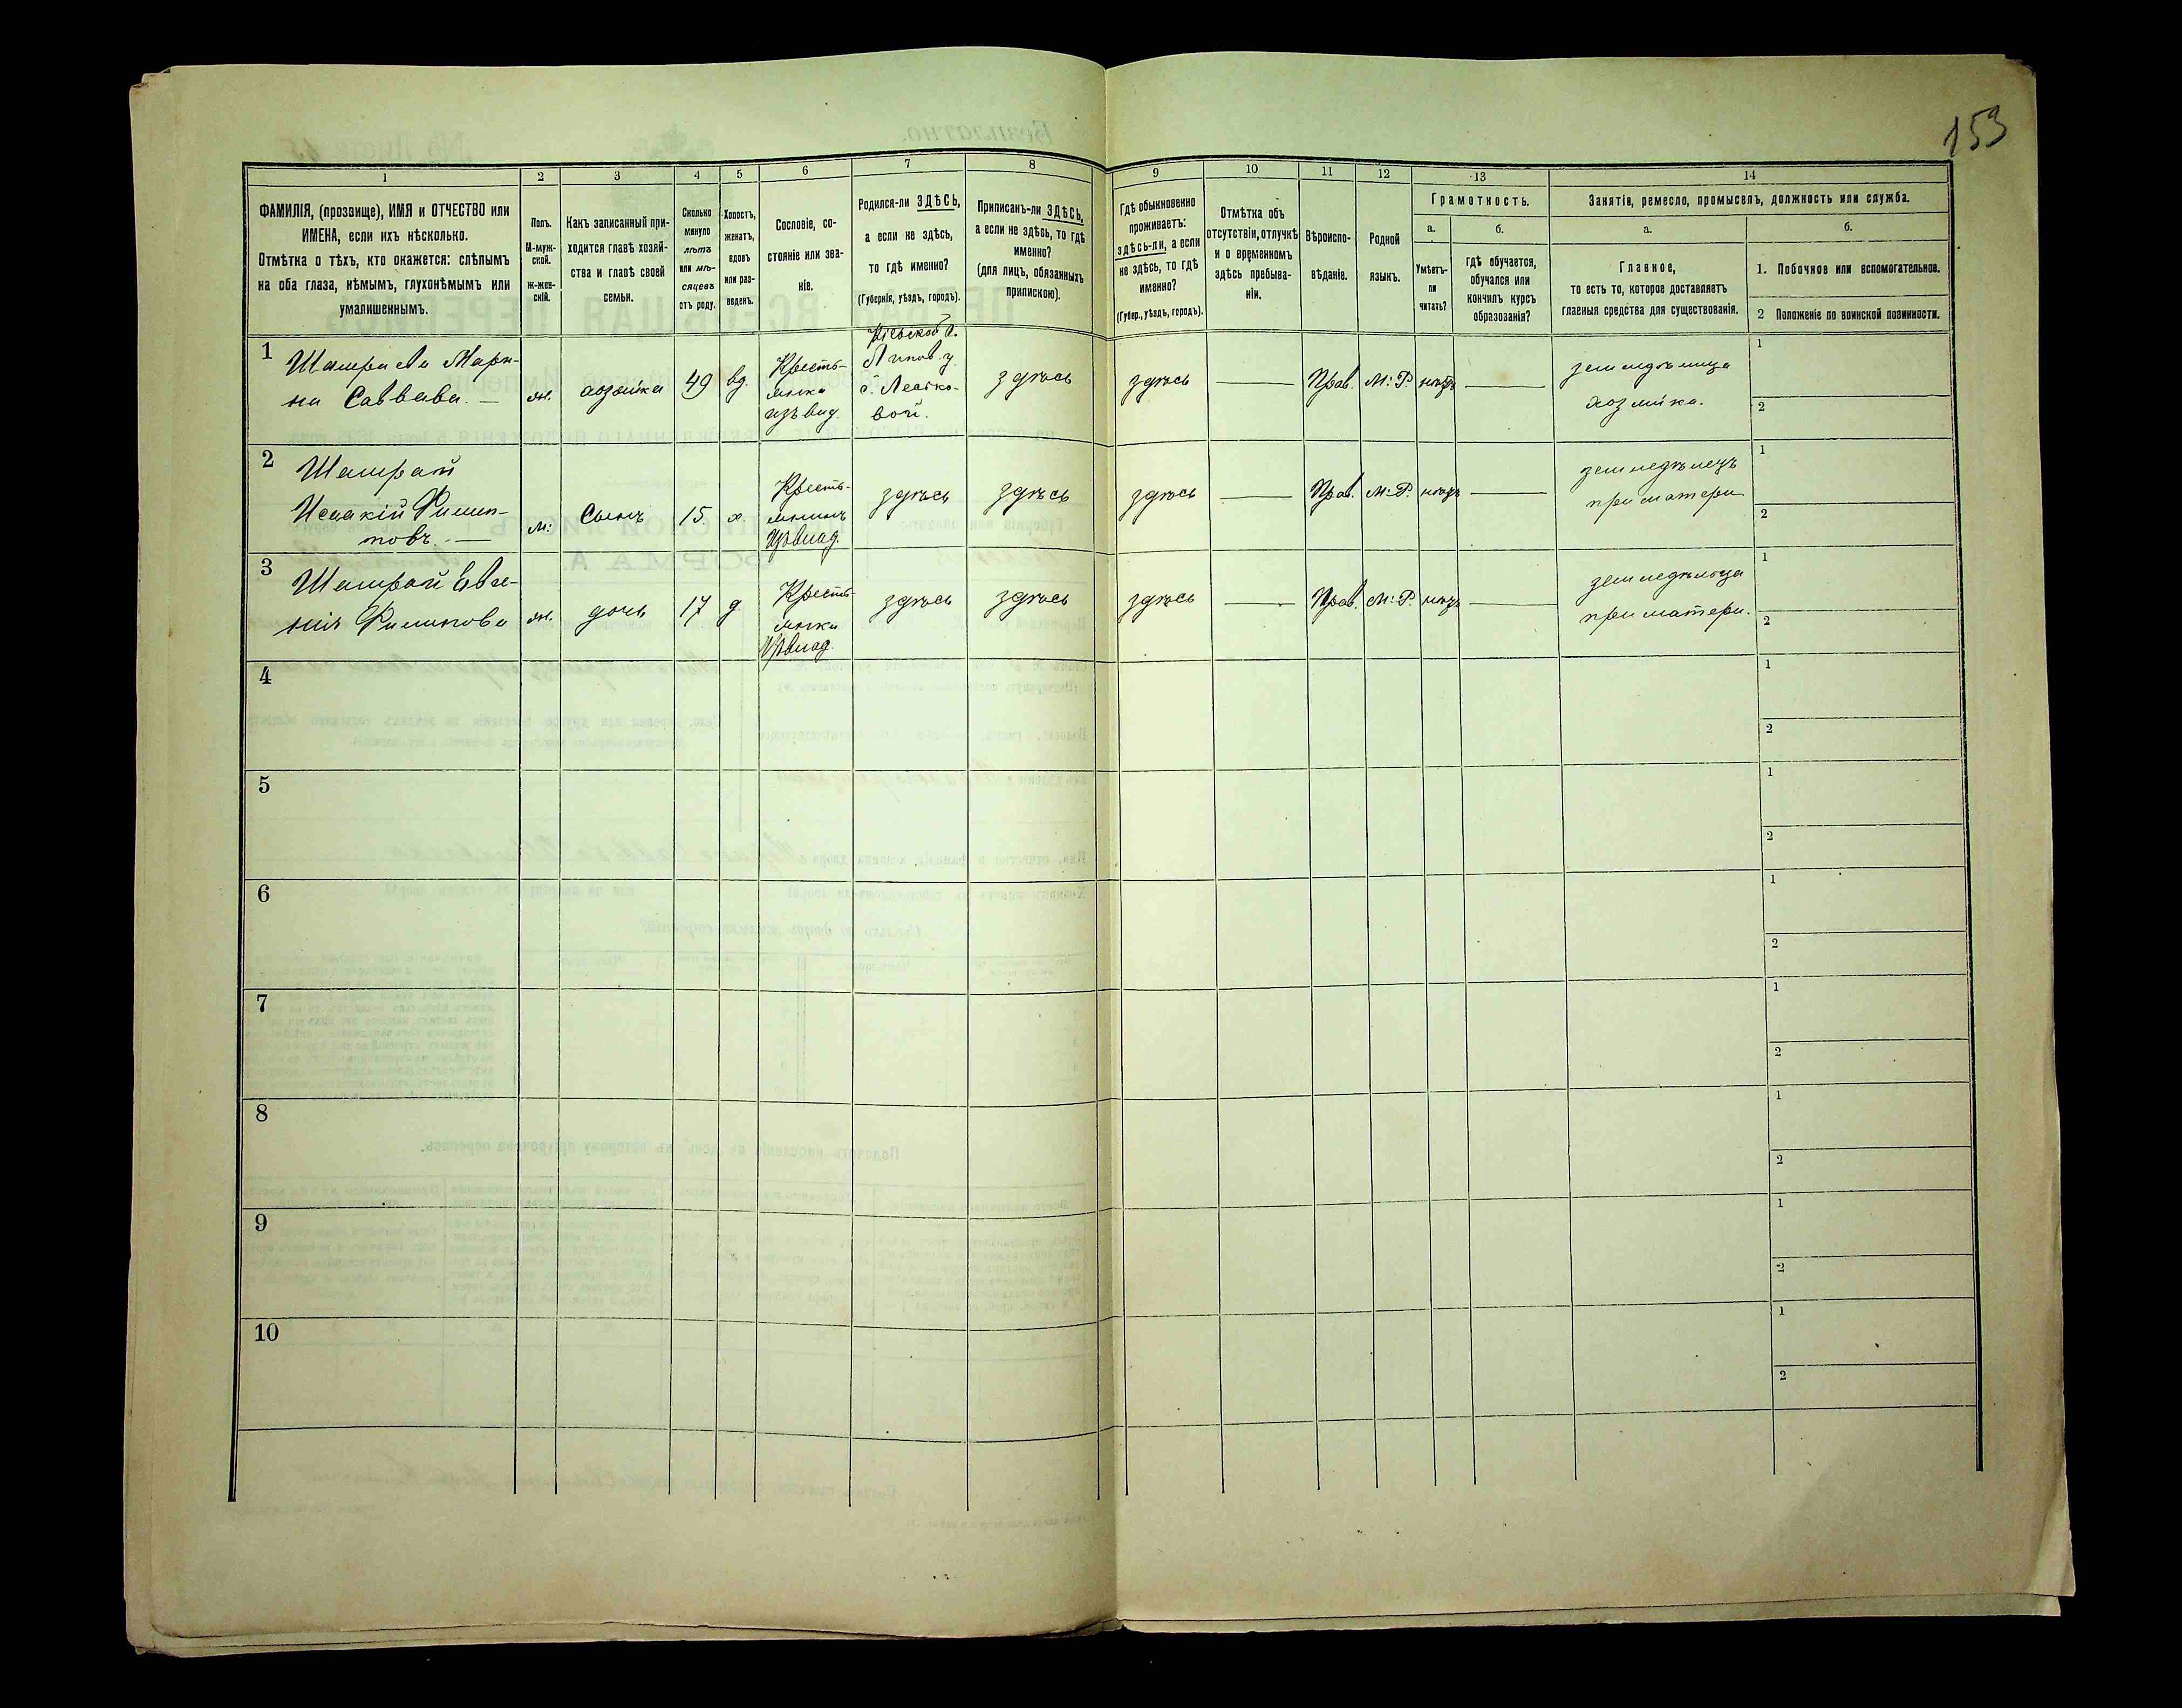 153
1 2 3 4 5 6 7 8 9 10 11 12 13 14
ФАМИЛІЯ, (прозвище), ИМЯ и ОТЧЕСТВО или
ИМЕНА, если ихъ нѣсколько.
Отмѣтка о тѣхъ, кто окажется: слѣпымъ
на оба глаза, нѣмымъ, глухонѣмымъ или
умалишеннымъ.
Полъ.
М-муж-
ской.
Ж-жен-
скій.
Какъ записанный при-
ходится главѣ хозяй-
ства и главѣ своей
семьи.
Сколько
минуло
лѣтъ
или мѣ-
сяцевъ
отъ роду.
Холостъ,
женатъ,
вдовъ
или раз-
веденъ.
Сословіе, со-
стояніе или зва-
ніе.
Родился-ли ЗДѢСЬ,
а если не здѣсь,
то гдѣ именно?
(Губернія, уѣздъ, городъ).
Приписанъ-ли ЗДѢСЬ,
а если не здѣсь, то гдѣ
именно?
(для лицъ, обязанныхъ
припискою).
Гдѣ обыкновенно
проживаетъ:
здѣсь-ли, а если
не здѣсь, то гдѣ
именно?
(Губер., уѣздъ, городъ).
Отмѣтка объ
отсутствіи, отлучкѣ
и о временномъ
здѣсь пребыва-
ніи.
Вѣроиспо-
вѣданіе.
Родной
языкъ.
Грамотность.
а.
Умѣетъ-
ли
читать?
б.
гдѣ обучается,
обучался или
кончилъ курсъ
образованія?
Занятія, ремесло, промыселъ, должность или служба.
а.
Главное,
то есть то, которое доставляетъ
главныя средства для существованія.
б.
1. Побочное или вспомогательное.
2 Положеніе по воинской повинности.
1
Шамраева Мари-
на Саввава. —
ж.
хозяйка
49
вд.
Кресть-
янка
изъ влад.
Кіевской г.
Липов. у.
здѣсь
здѣсь
—
Прав.
М: Р.
нѣтъ
—
земледѣлица
хозяйка.
1
2
2
Шамрай
Исаакій Филип-
повъ. —
м:
Сынъ
15
х.
Кресть-
янинъ
Изъ влад.
здѣсь
здѣсь
здѣсь
—
Прав.
М: Р.
нѣтъ
—
земледѣлецъ
при матери
1
2
3
Шамрай Евге-
нія Филипова
ж.
дочь
17
д.
Кресть-
янка
Изъ влад.
здѣсь
здѣсь
здѣсь
—
Прав.
М: Р.
нѣтъ
—
земледѣлица
при матери.
1
2
4
1
2
5
1
2
6
1
2
7
1
2
8
1
2
9
1
2
10
1
2